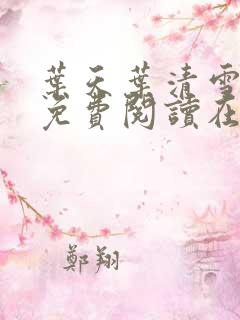 葉天葉清雪
免費閱讀在
鄭翔